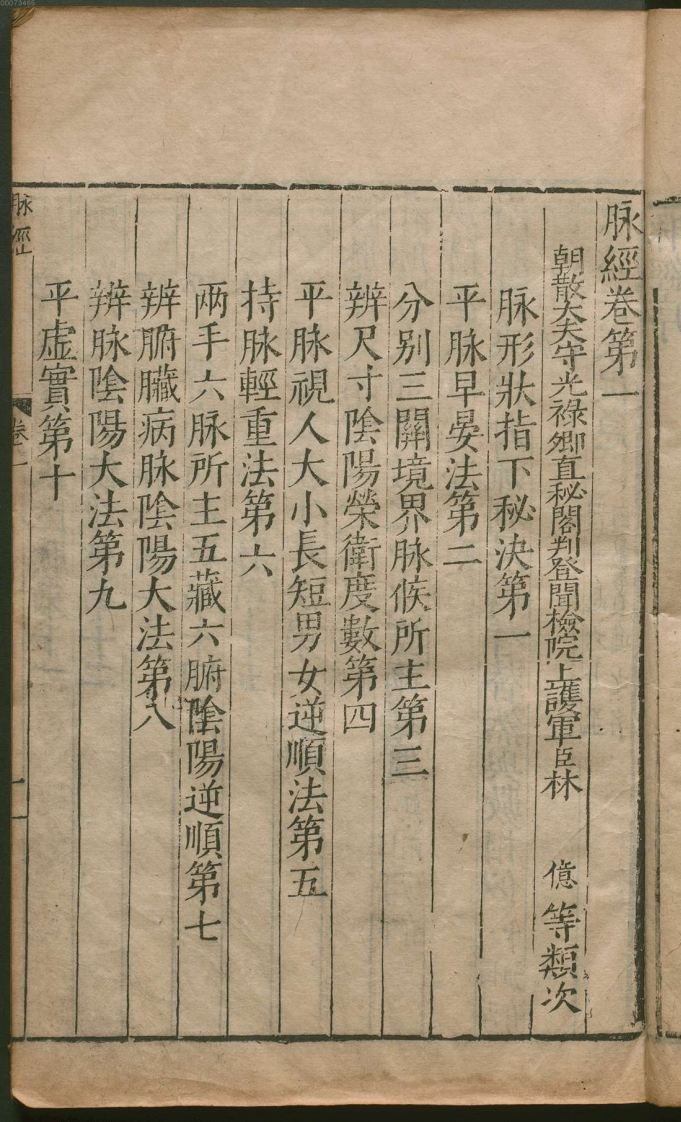 00073466
脉經卷第一
朝散大夫守光祿卿直秘閣判登聞檢院上護軍臣林億等類次
脉形狀指下秘決第一
平脉早晏法第二
分别三關境界脉候所主第三
辨尺寸陰陽榮衛度數第四
平脉視人大小長短男女逆順法第五
持脉輕重法第六
兩手六脉所主五藏六腑陰陽逆順第七
辨腑臟病脉陰陽大法第八
辨脉陰陽大法第九
平虛實第十
脉經
卷一